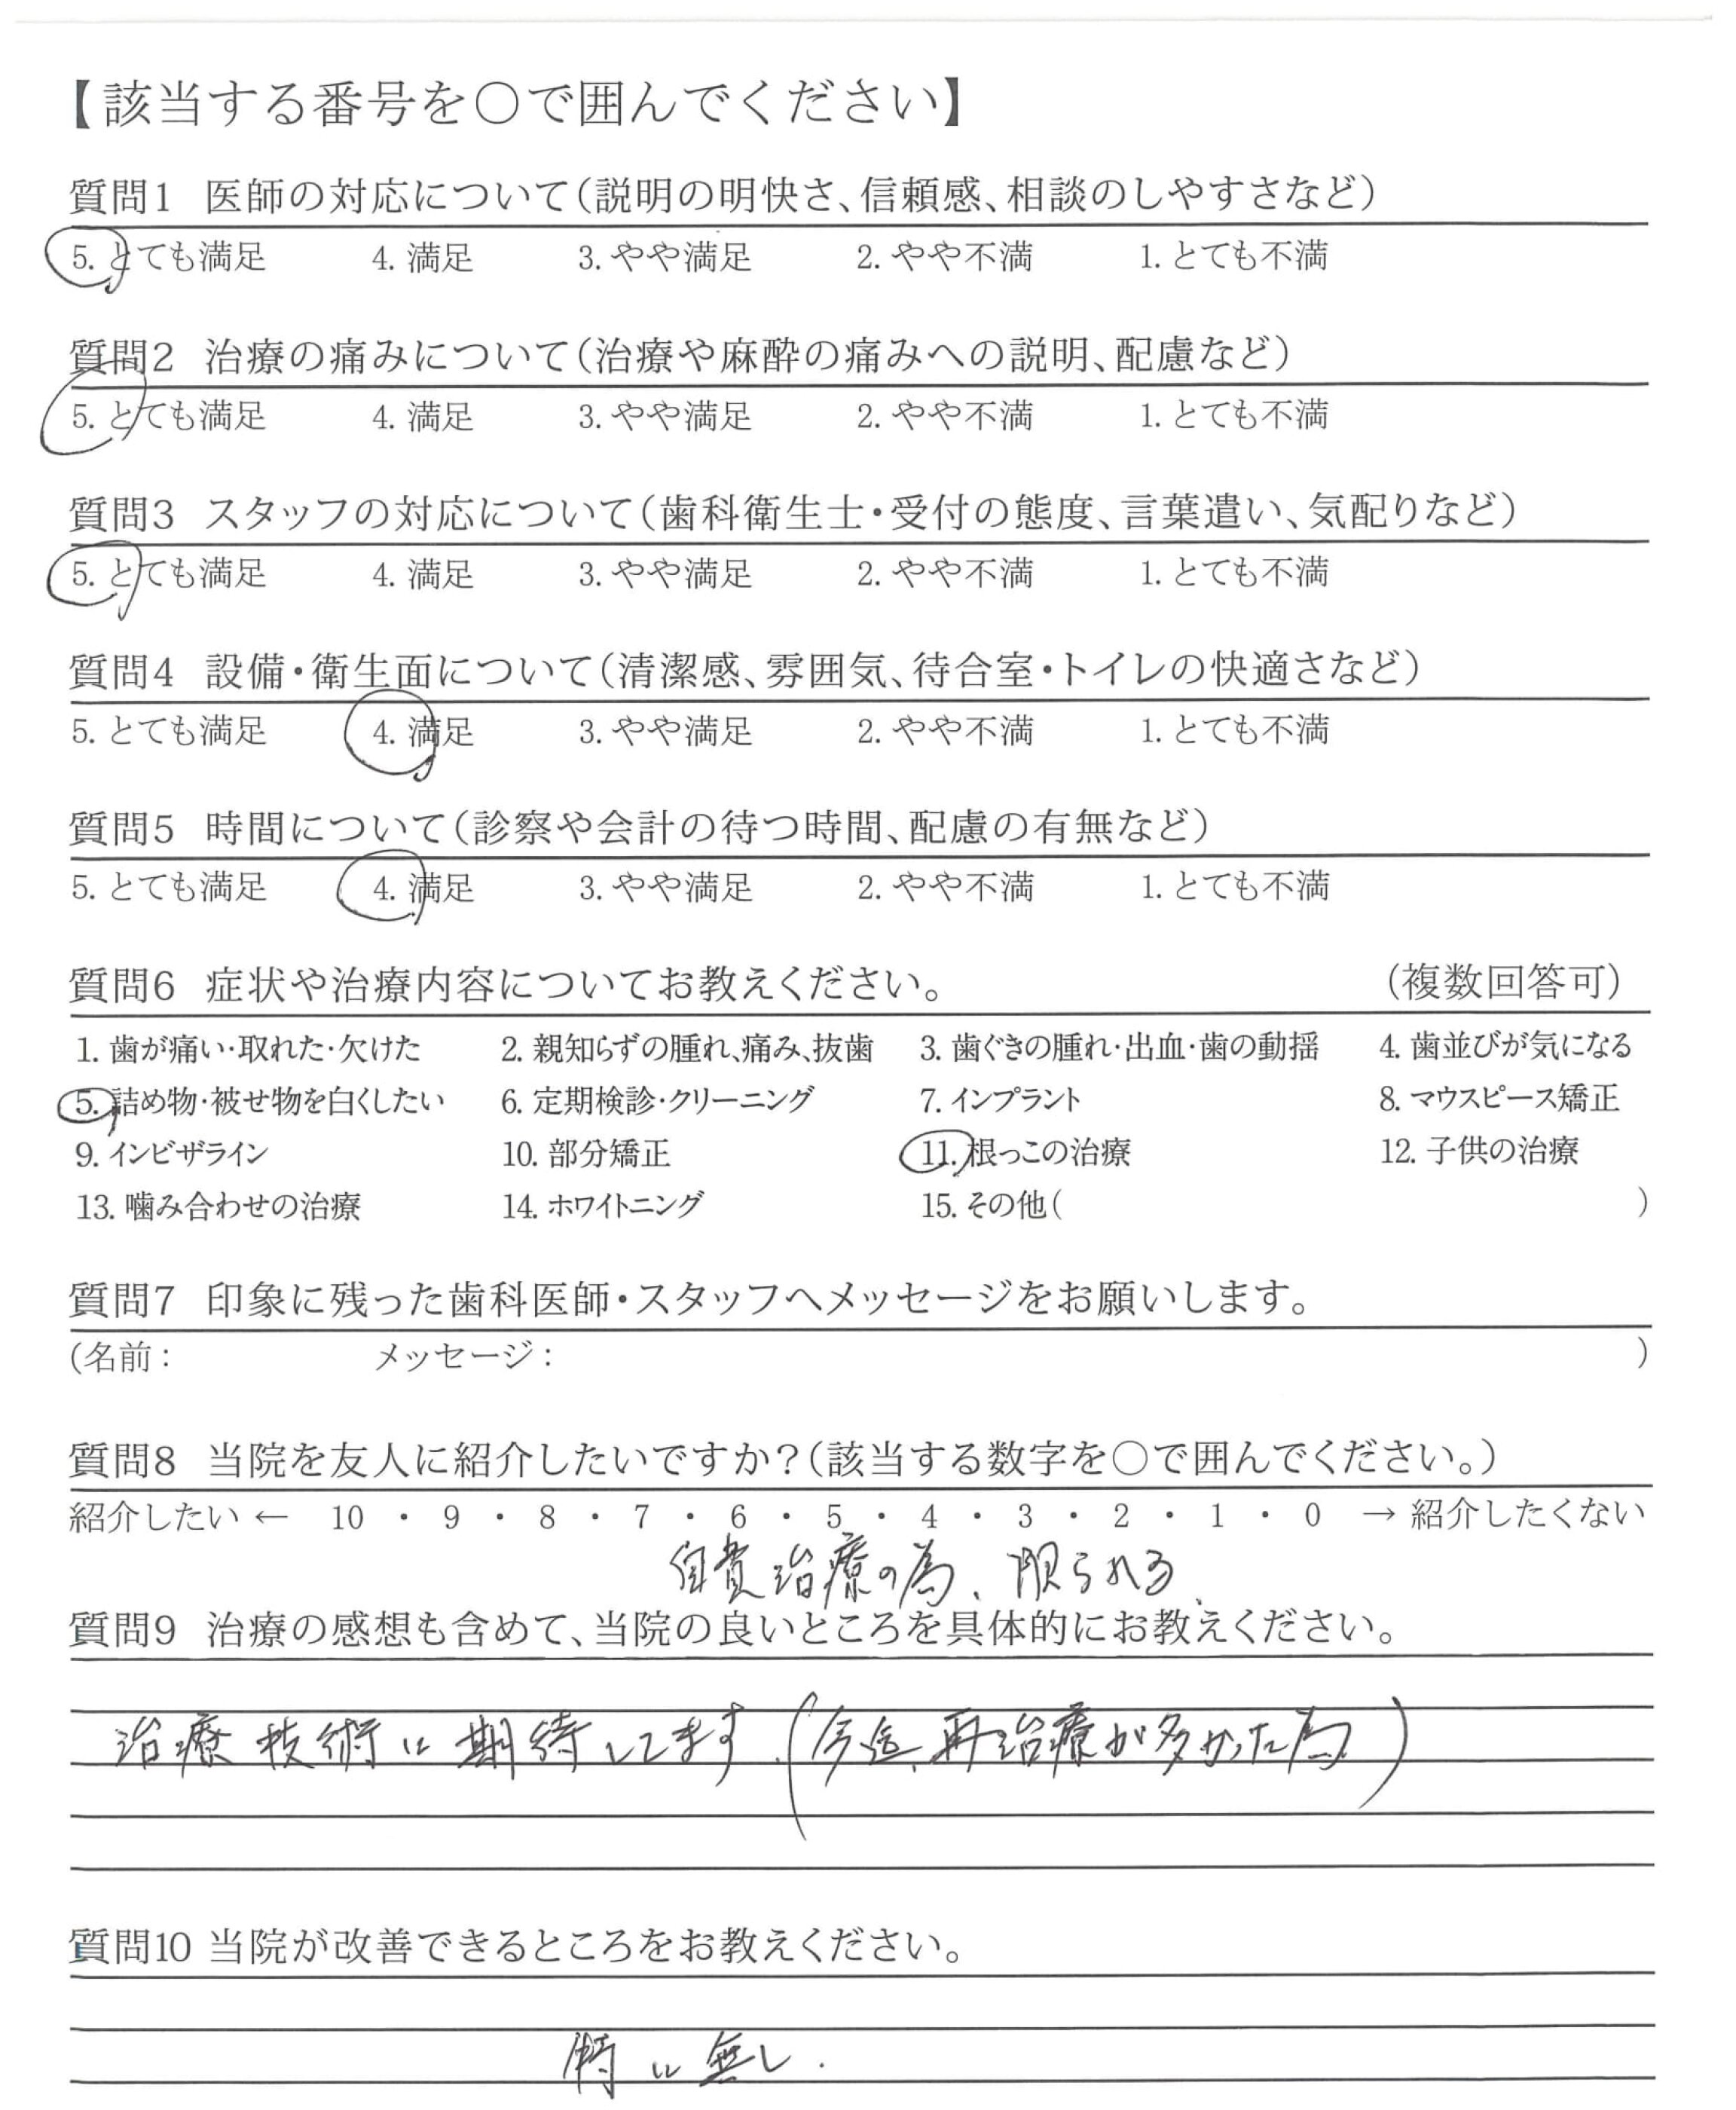 【該当する番号を○で囲んでください】
質問1 医師の対応について(説明の明快さ、信頼感、相談のしやすさなど)
5. とても満足 4. 満足 3. やや満足 2. やや不満 1. とても不満
質問2 治療の痛みについて(治療や麻酔の痛みへの説明、配慮など)
5. とても満足 4. 満足 3. やや満足 2. やや不満 1. とても不満
質問3 スタッフの対応について(歯科衛生士・受付の態度、言葉遣い、気配りなど)
5. とても満足 4. 満足 3. やや満足 2. やや不満 1. とても不満
質問4 設備・衛生面について(清潔感、雰囲気、待合室・トイレの快適さなど)
5. とても満足 4. 満足 3. やや満足 2. やや不満 1. とても不満
質問5 時間について(診察や会計の待つ時間、配慮の有無など)
5. とても満足 4. 満足 3. やや満足 2. やや不満 1. とても不満
質問6 症状や治療内容についてお教えください。 (複数回答可)
1. 歯が痛い・取れた・欠けた 2. 親知らずの腫れ、痛み、抜歯 3. 歯ぐきの腫れ・出血・歯の動揺 4. 歯並びが気になる
5. 詰め物・被せ物を白くしたい 6. 定期検診・クリーニング 7. インプラント 8. マウスピース矯正
9. インビザライン 10. 部分矯正 11. 根っこの治療 12. 子供の治療
13. 噛み合わせの治療 14. ホワイトニング 15. その他( )
質問7 印象に残った歯科医師・スタッフへメッセージをお願いします。
(名前: メッセージ: )
質問8 当院を友人に紹介したいですか?(該当する数字を○で囲んでください。)
紹介したい ← 10 ・ 9 ・ 8 ・ 7 ・ 6 ・ 5 ・ 4 ・ 3 ・ 2 ・ 1 ・ 0 → 紹介したくない
自費治療の為、限られる、
質問9 治療の感想も含めて、当院の良いところを具体的にお教えください。
治療技術に期待してます.(今迄、再治療が多かった為)
質問10 当院が改善できるところをお教えください。
特に無し.